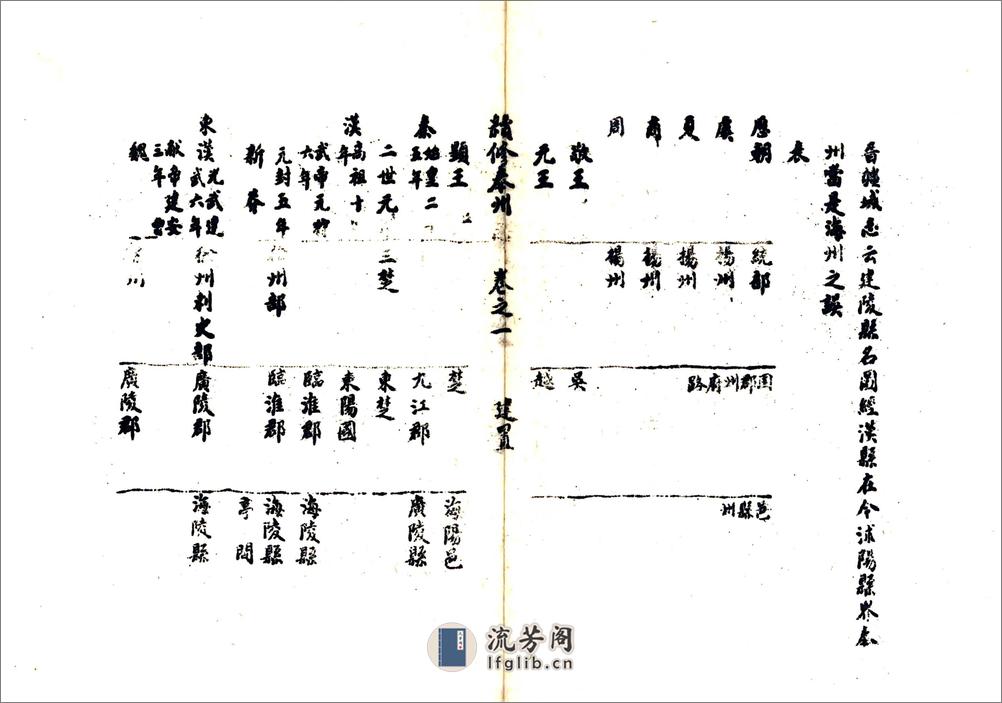 晉隆城志云建陵縣名圖經漢縣在今沭陽縣界泰
州當是海州之誤
表
歷朝 統部 國郡州府路 邑縣州
虞 揚州
夏 揚州
商 揚州
周 揚州
敬王 吳
元王 越
續修泰州 卷之一 建置
顯王 楚 海陽邑
秦始皇二五年 九江郡 廣陵縣
二世元 三楚 東楚
漢高祖十年 東陽國
武帝元狩六年 臨淮郡 海陵縣
元封五年 州部 臨淮郡 海陵縣
新莽 亭間
東漢光武建武六年 徐州刺史部 廣陵郡 海陵縣
獻帝建安三年
魏 州 廣陵郡
流芳阁
lfglib.cn